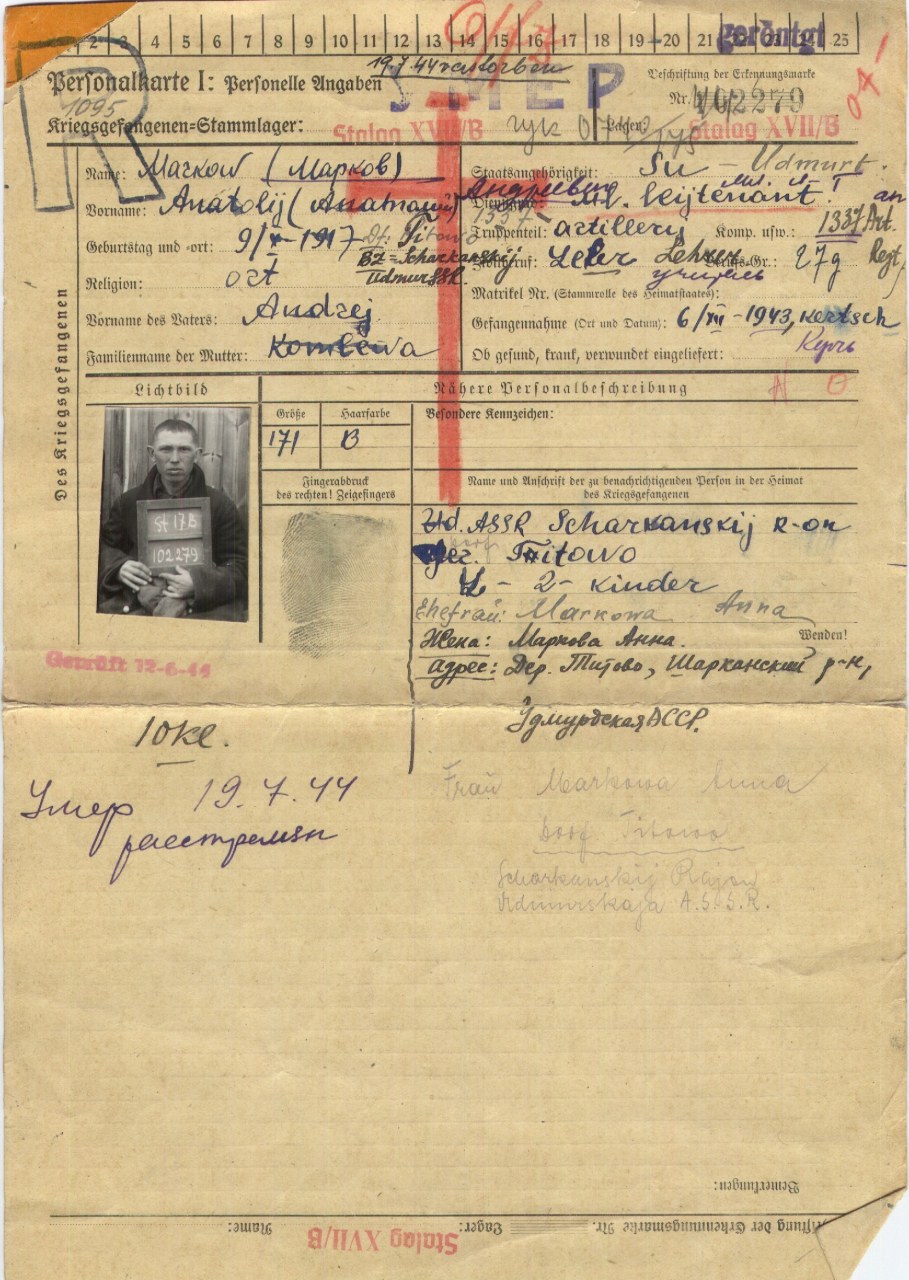 2 3 4 5 6 7 8 9 10 11 12 13 14 15 16 17 18 19 20 21 25
geröntgt
19.7.44 verstorben
Personalkarte I: Personelle Angaben
УМЕР
Beschriftung der Erkennungsmarke
1095
Nr. 102279
Kriegsgefangenen-Stammlager:
Stalag XVII/B
Lager:
Stalag XVII/B
04-
R
Des Kriegsgefangenen
Name: Markow (Марков)
Staatsangehörigkeit: Su - Udmurt.
Vorname: Anatolij (Анатолий)
Андреевич
Dienstgrad: Ml. lejtenant
1337
Geburtstag und -ort: 9/ -1917 Df. Titowo
Truppenteil: artillery Komp. usw.: 1337 Art. Regt.
BZ=Scharkanskij
UdmurSSR.
Lehrer
учитель
Berufs-Gr.: 27g
Religion: ort
Matrikel Nr. (Stammrolle des Heimatstaates):
Vorname des Vaters: Andrej
Gefangennahme (Ort und Datum): 6/XII-1943, Kertsch
Керчь
Familienname der Mutter:
Ob gesund, krank, verwundet eingeliefert:
Lichtbild
Nähere Personalbeschreibung
Größe
Haarfarbe
Besondere Kennzeichen:
171
B
St 17B
102279
Fingerabdruck
des rechten! Zeigefingers
Name und Anschrift der zu benachrichtigenden Person in der Heimat
des Kriegsgefangenen
Ud. ASSR Scharkanskij R-on
Titowo
2 - Kinder
Ehefrau: Markowa Anna
Жена: Маркова Анна.
Wenden!
адрес: Дер. Титово, Шарканский р-н,
Удмурдская АССР.
Geprüft 12-6-44
10 kl.
Умер 19.7.44
расстрелян
Frau Markowa Anna
Dorf. Titowo
Scharkanskij Rajon
Udmurskaja A.S.S.R.
Bemerkungen:
Beschriftung der Erkennungsmarke Nr.
Lager:
Stalag XVII/B
Name: